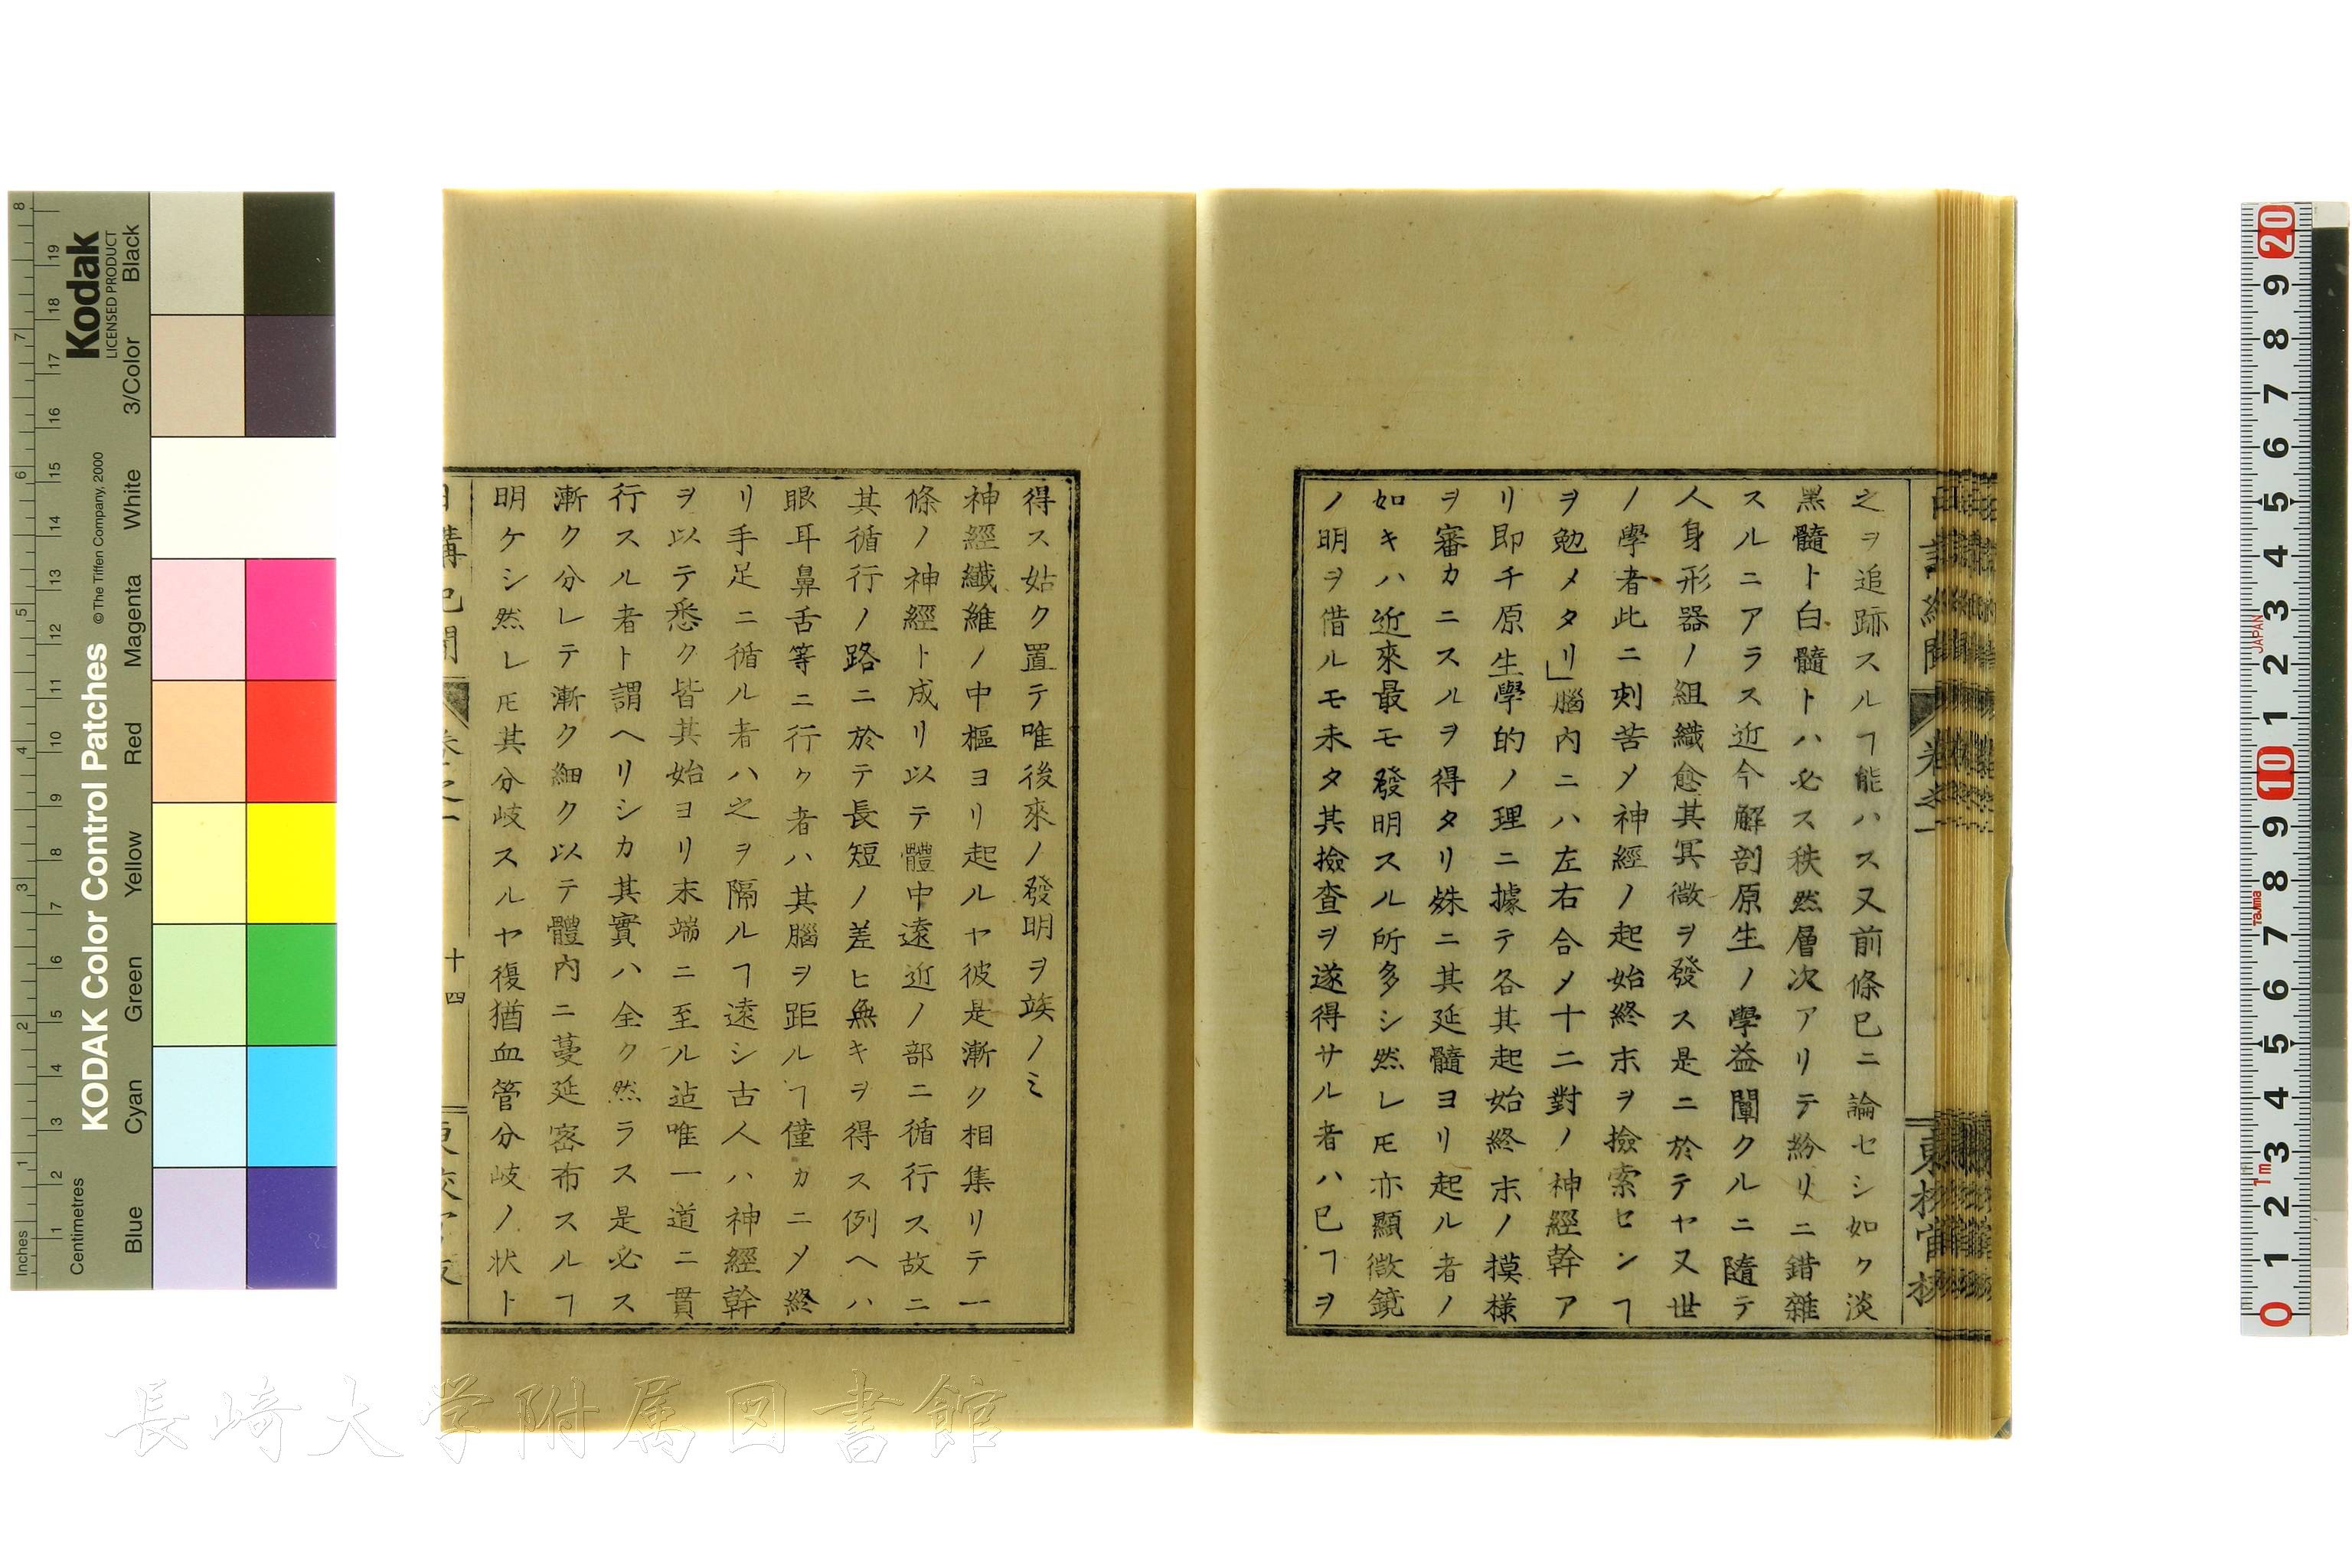 之ヲ追跡スルヿ能ハス又前條巳ニ論セシ如ク淡
黑髓ト白髓トハ必ス秩然層次アリテ紛リニ錯雜
スルニアラス近今解剖原生ノ學益闡クルニ隨テ
人身形器ノ組織愈其冥微ヲ發ス是ニ於テヤ又世
ノ學者此ニ刺苦メ神經ノ起始終末ヲ撿索センヿ
ヲ勉メタリ」腦内ニハ左右合メ十二對ノ神經幹ア
リ即チ原生學的ノ理ニ據テ各其起始終末ノ摸樣
ヲ審カニスルヲ得タリ殊ニ其延髓ヨリ起ル者ノ
如キハ近來最モ發明スル所多シ然レ𪜈亦顯微鏡
ノ明ヲ借ルモ未タ其撿查ヲ遂得サル者ハ巳ヿヲ
得ス姑ク置テ唯後來ノ發明ヲ竢ノミ
神經纎維ノ中樞ヨリ起ルヤ彼是漸ク相集リテ一
條ノ神經ト成リ以テ體中遠近ノ部ニ循行ス故ニ
其循行ノ路ニ於テ長短ノ差ヒ無キヲ得ス例ヘハ
眼耳鼻舌等ニ行ク者ハ其腦ヲ距ルヿ僅カニメ終
リ手足ニ循ル者ハ之ヲ隔ルヿ遠シ古人ハ神經幹
ヲ以テ悉ク皆其始ヨリ末端ニ至ル迠唯一道ニ貫
行スル者ト謂ヘリシカ其實ハ全ク然ラス是必ス
漸ク分レテ漸ク細ク以テ體内ニ蔓延密布スルヿ
明ケシ然レ𪜈其分歧スルヤ復猶血管分歧ノ状ト
十四
長崎大学附属図書館
Kodak
LICENSED PRODUCT
KODAK Color Control Patches
© The Tiffen Company, 2000
Inches
Centimetres
Blue
Cyan
Green
Yellow
Red
Magenta
White
3/Color
Black
JAPAN
Tajima
1m